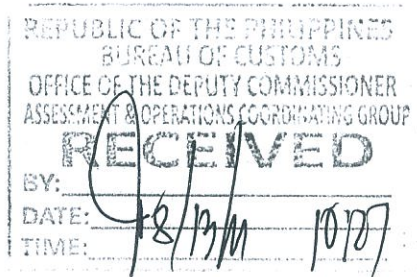 REPUBLIC OF THE PHILIPPINES
BUREAU OF CUSTOMS
OFFICE OF THE DEPUTY COMMISSIONER
ASSESSMENT & OPERATIONS COORDINATING GROUP
RECEIVED
BY:
DATE:
TIME: